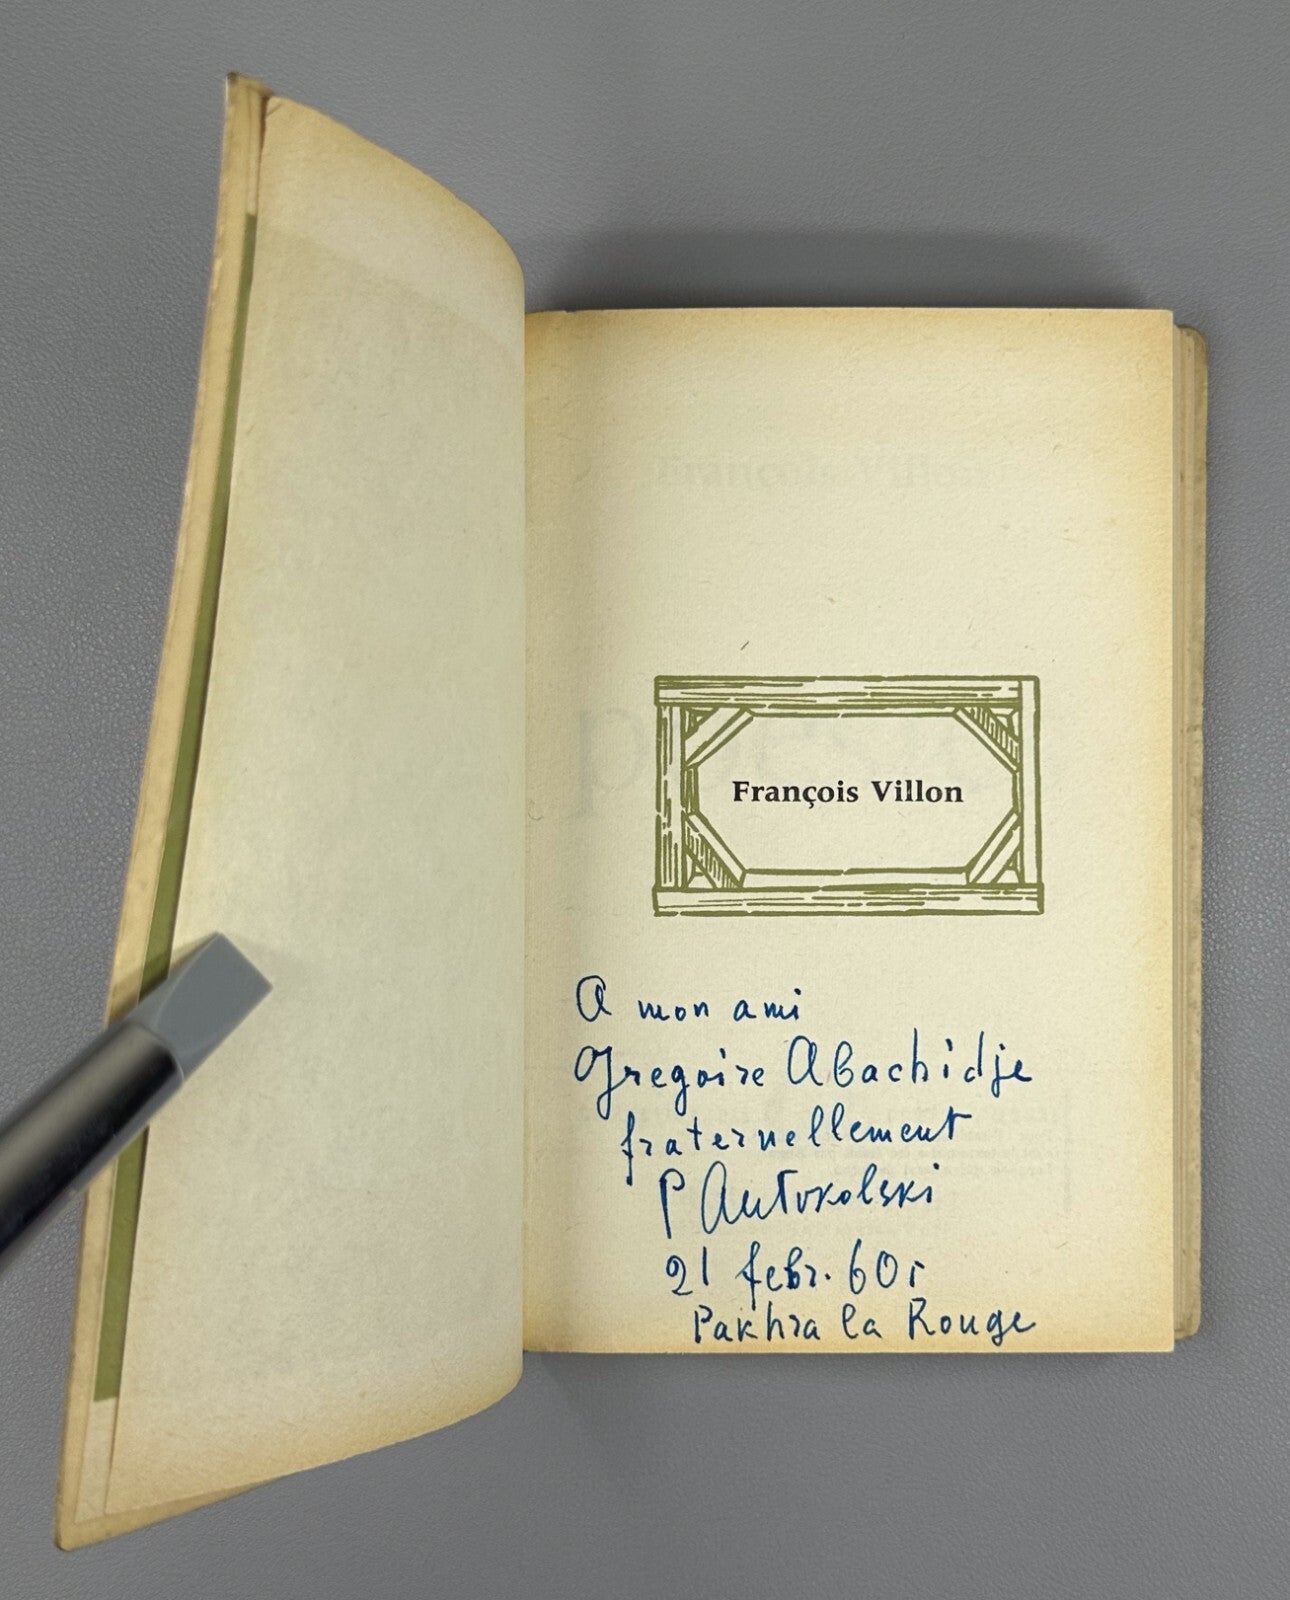 François Villon
A mon ami
Gregoire Abachidje
fraternellement
P Antokolski
21 febr. 60 г
Pakhra la Rouge